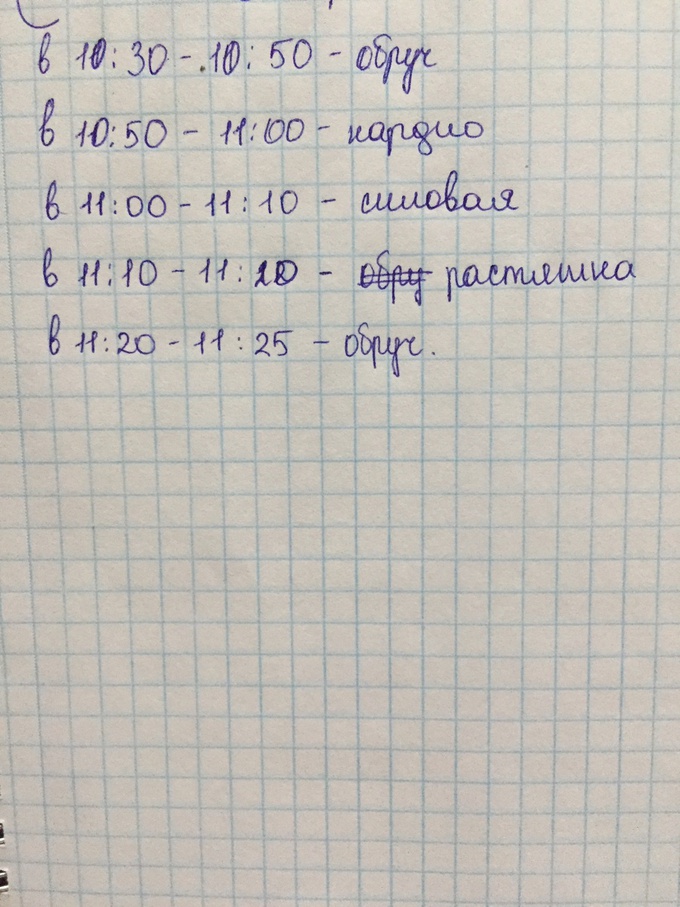 в 10:30 - 10:50 - обруч
в 10:50 - 11:00 - кардио
в 11:00 - 11:10 - силовая
в 11:10 - 11:20 - обру растяшка
в 11:20 - 11:25 - обруч.